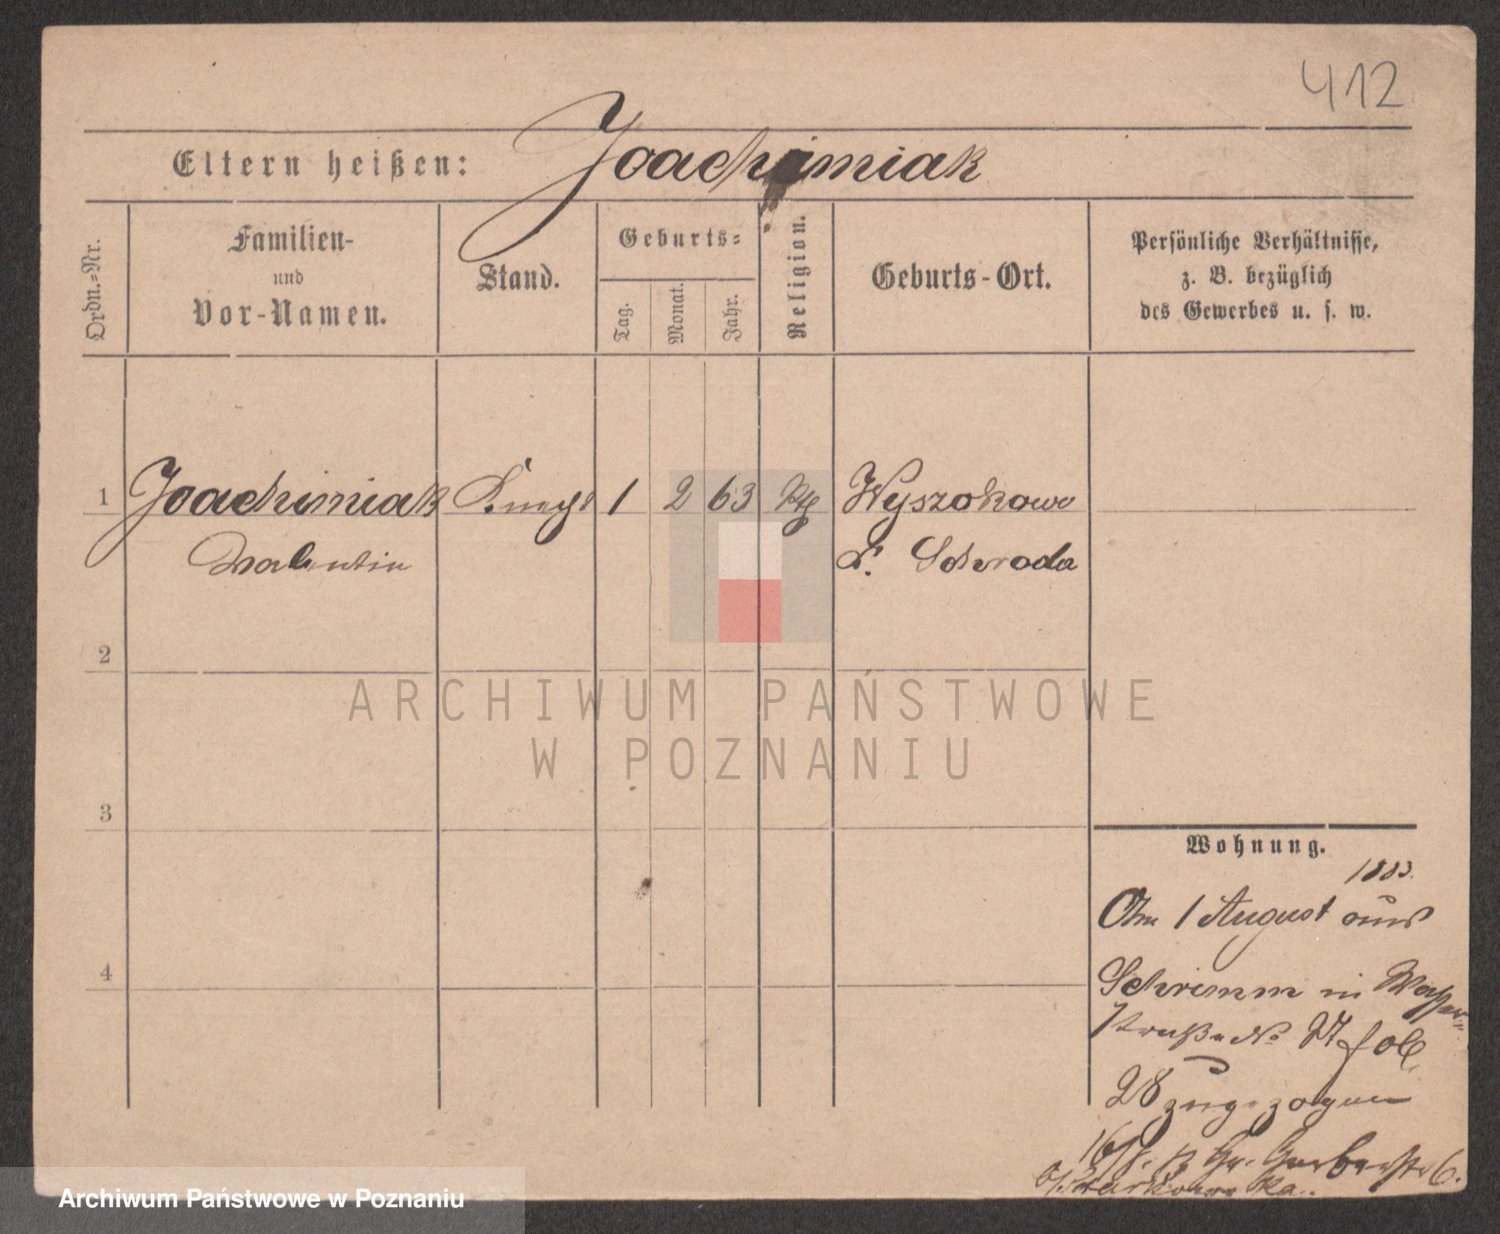 412
Eltern heißen: Joachimiak
Ordn.-Nr.
Familien-
und
Vor-Namen.
Stand.
Geburts-
Tag.
Monat.
Jahr.
Religion.
Geburts-Ort.
Persönliche Verhältnisse,
z. B. bezüglich
des Gewerbes u. s. w.
1 Joachimiak Knecht 1 2 63 Kth Wyszakowo
Valentin Kr. Schroda
2
ARCHIWUM PAŃSTWOWE
W POZNANIU
3
Wohnung.
1883.
Am 1 August aus
Schrimm in Wasser-
straße No 27 fol
28 zugezogen
16/8. Gr. Gerberstr 6.
Archiwum Państwowe w Poznaniu